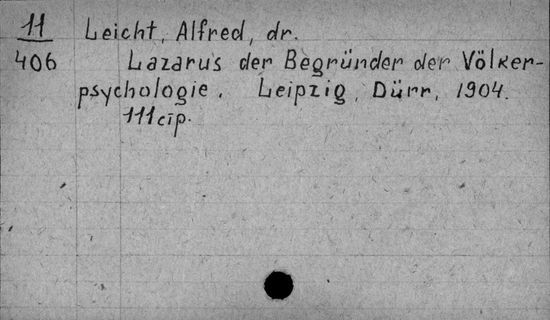 11 Leicht, Alfred, dr.
406 Lazarus der Begründer der Völker-
psychologie. Leipzig, Dürr, 1904.
111 cīp.